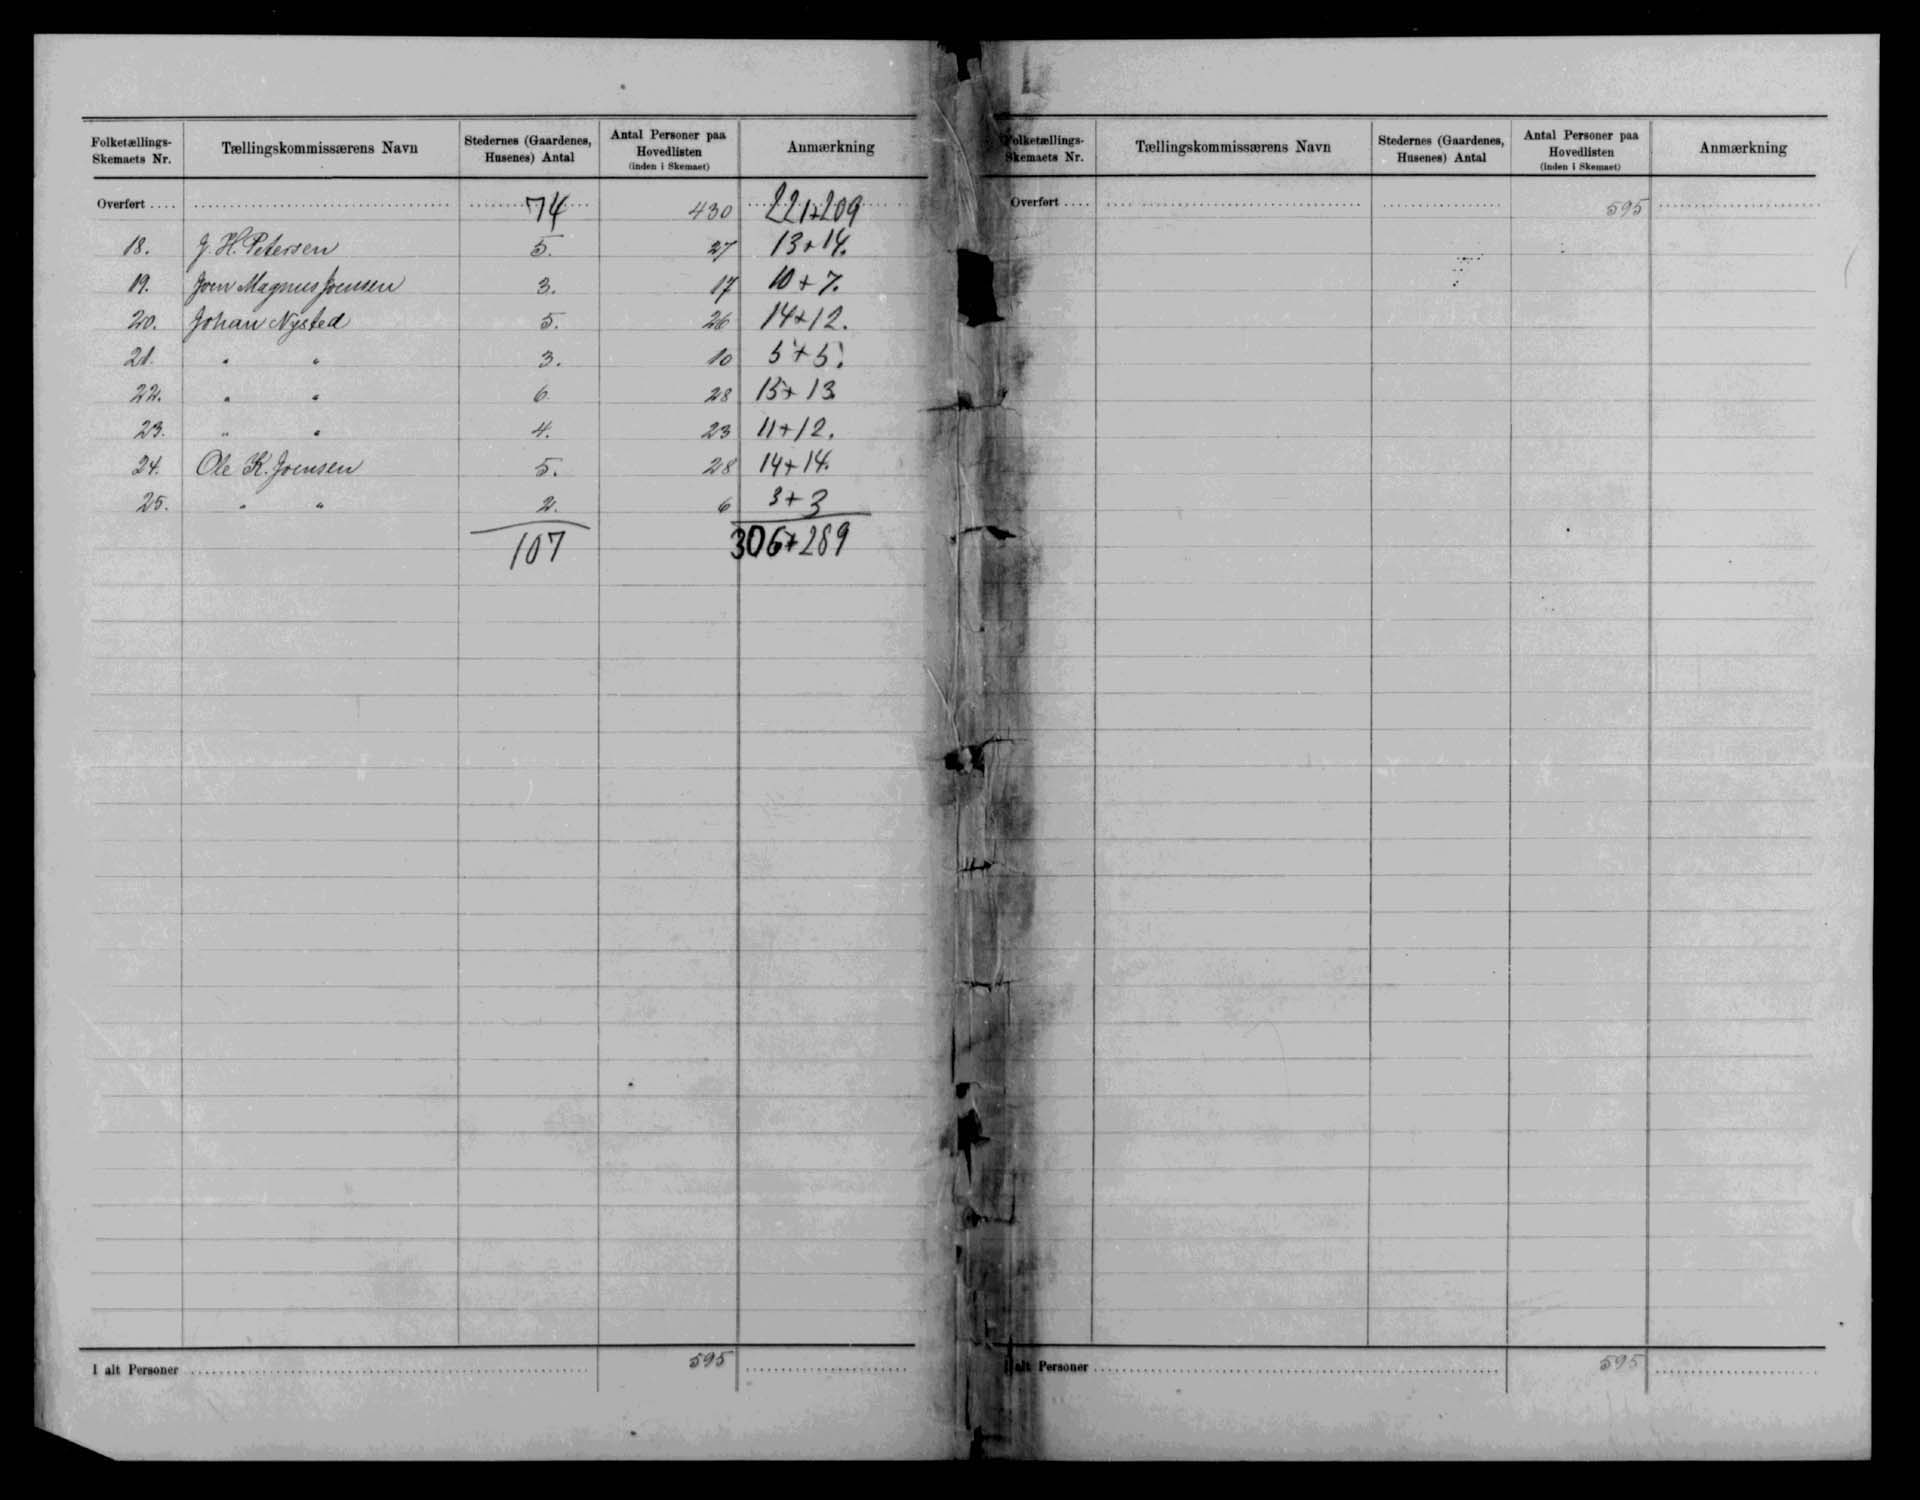 Folketællings-Skemaets Nr. Tællingskommissærens Navn Stedernes (Gaardenes, Husenes) Antal Antal Personer paa Hovedlisten (inden i Skemaet) Anmærkning
Overført .... 74 430 221+209
18. J. H. Petersen 5. 27 13+14.
19. Joen Magnus Joensen 3. 17 10+7.
20. Johan Nysted 5. 26 14+12.
21. " " 3. 10 5+5.
22. " " 6. 28 15+13
23. " " 4. 23 11+12.
24. Ole K. Joensen 5. 28 14+14.
25. " " 2. 6 3+3
107 306+289
I alt Personer 595
Folketællings-Skemaets Nr. Tællingskommissærens Navn Stedernes (Gaardenes, Husenes) Antal Antal Personer paa Hovedlisten (inden i Skemaet) Anmærkning
Overført .... 595
I alt Personer 595